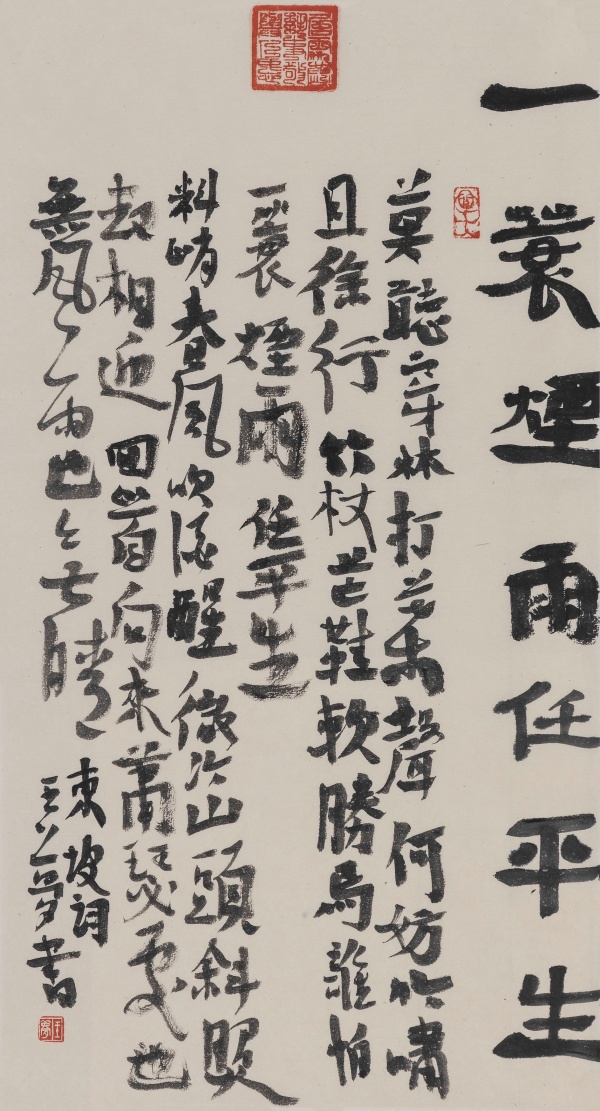 一蓑煙雨任平生
莫聽穿林打葉聲何妨吟嘯
且徐行竹杖芒鞋軟勝馬誰怕
一蓑煙雨任平生
料峭春風吹酒醒微冷山頭斜照
却相迎回首向来蕭瑟處也
無風雨也无晴
東坡詞
王夢書